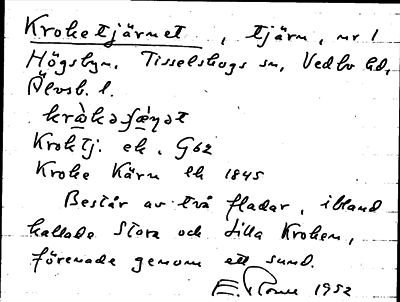 Kroketjärnet, tjärn, nr 1
Högsbyn, Tisselskogs sn, Vedbo hd,
Älvsb. l.
Kroktj. ek. G62
Kroke Kärn ek 1845
Består av två fladar, ibland
kallade Stora och Lilla Kroken,
förenade genom ett sund.
E. 1952